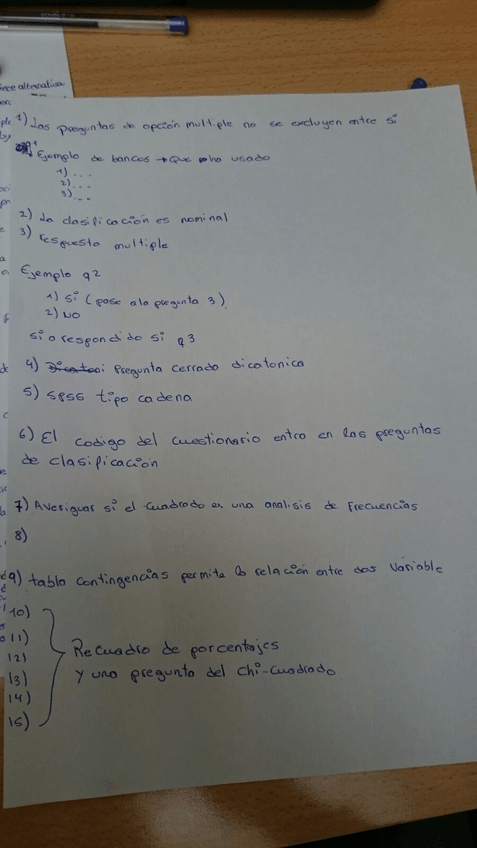 iere alternativa
1) Las preguntas de opción multiple no se excluyen entre si
Ejemplo de bancos → Que ha usado
1) ...
2) ...
3) ...
2) La clasificación es nominal
3) respuesta multiple
Ejemplo q2
1) Si (pase a la pregunta 3)
2) NO
Si a respondido si q3
4) Dicatoni Pregunta cerrado dicatonica
5) SPSS tipo cadena
6) El codigo del cuestionario entra en las preguntas
de clasificación
7) Averiguar si el cuadrado es una analisis de Frecuencias
8)
9) tabla contingencias permite la relación entre dos Variable
10)
11)
12)
13)
14)
15)
Recuadro de porcentajes
y una pregunta del chi-cuadrado